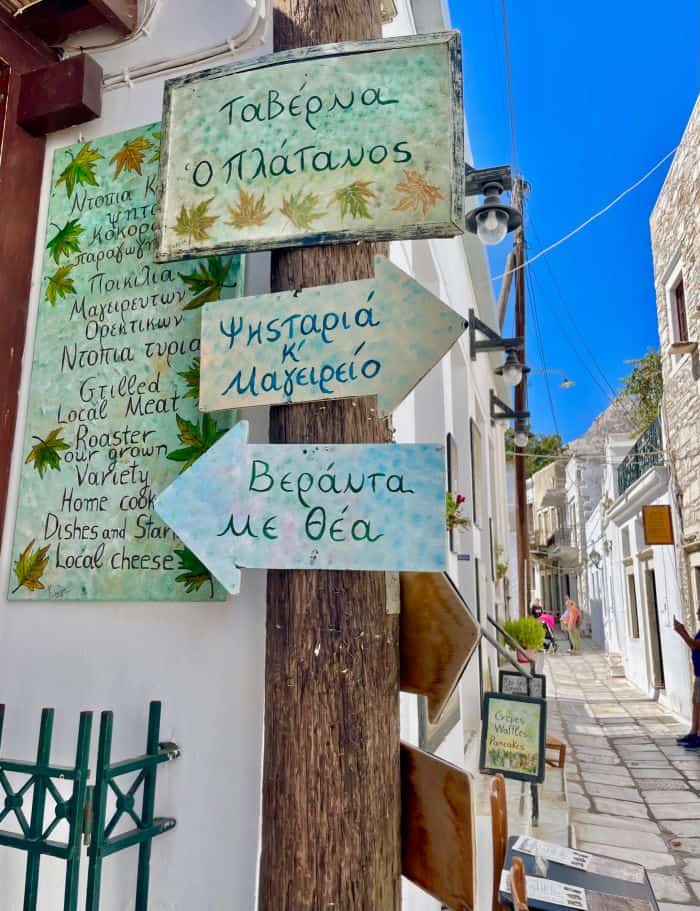 Ταβέρνα
Ὁ Πλάτανος
Ψηςταριά
κ'
Μαγειρείο
Βεράντα
με θέα
Ντόπια
παραγωγή
Ποικιλία
Μαγειρευτών
Ορεκτικών
Ντόπια τυριά
Grilled
Local Meat
Roaster
our grown
Variety
Home
Dishes and
Local cheese
Crepes
Waffles
Pancakes